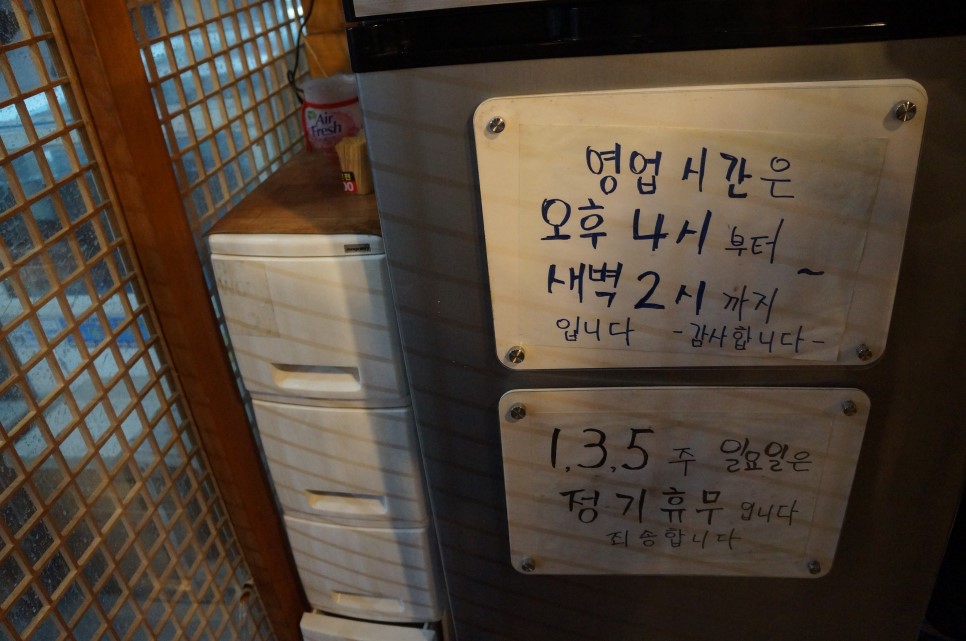 Air
Fresh
영업시간은
오후 4시 부터 ~
새벽 2시 까지
입니다 -감사합니다-
1.3.5 주 일요일은
정기휴무 입니다
죄송합니다